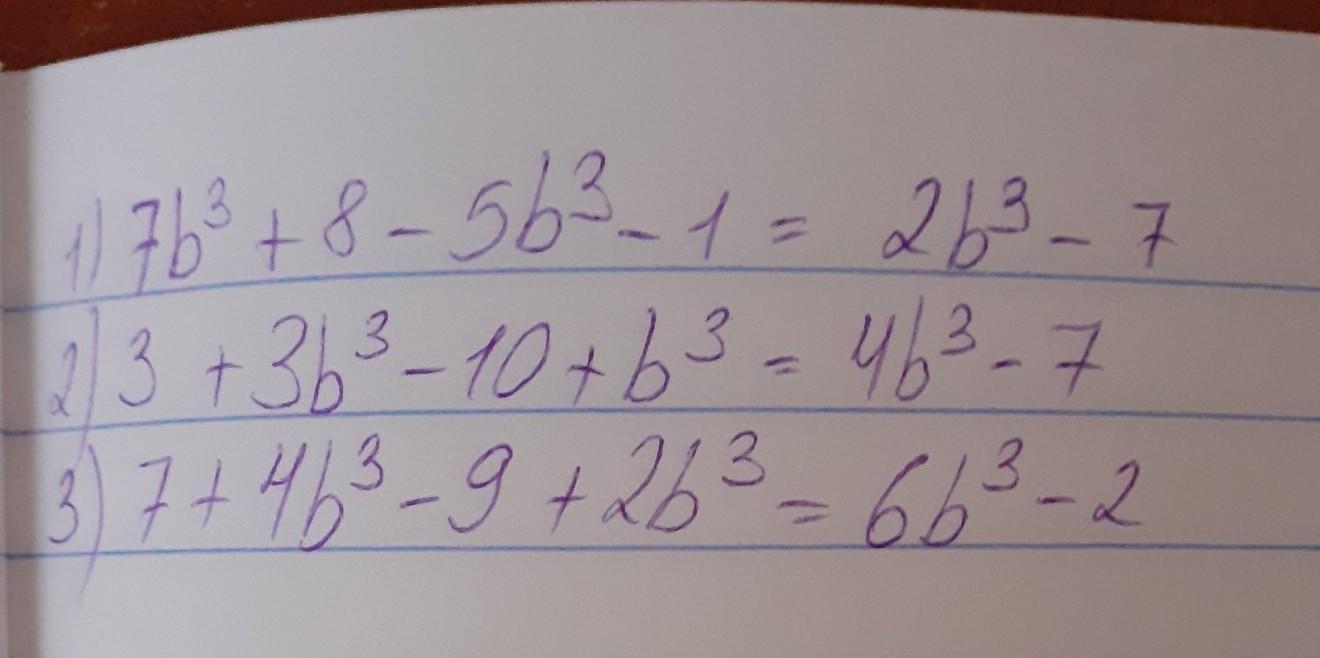 1) 7b³ + 8 - 5b³ - 1 = 2b³ - 7
2) 3 + 3b³ - 10 + b³ = 4b³ - 7
3) 7 + 4b³ - 9 + 2b³ = 6b³ - 2